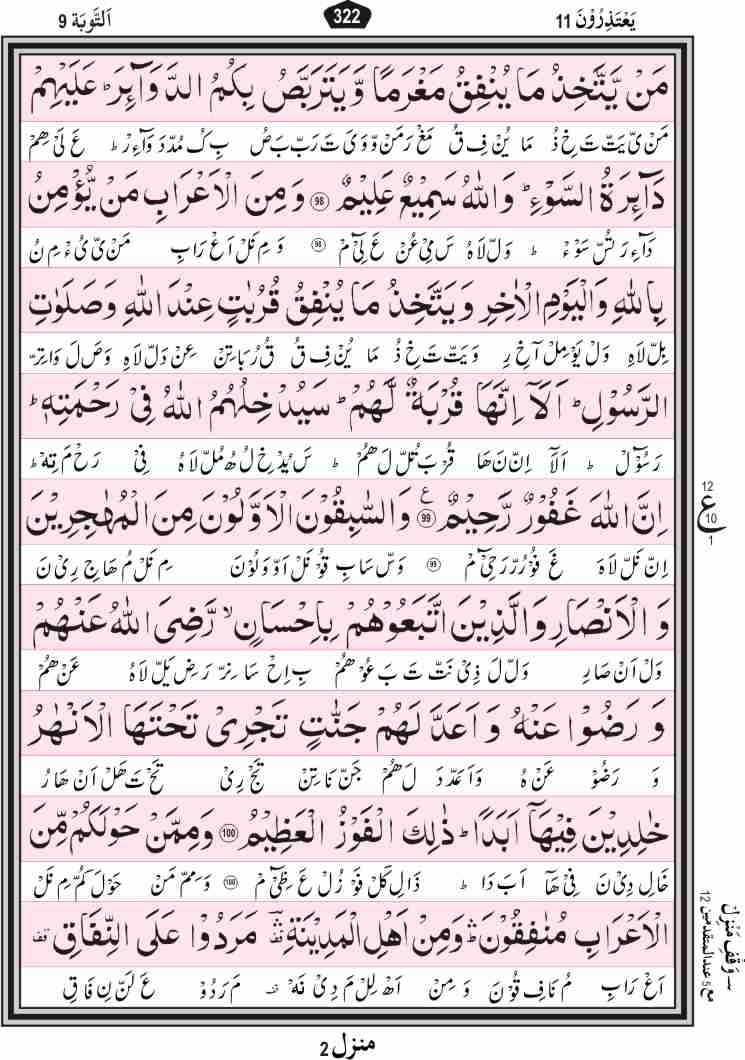 اَلتَّوبَة 9
322
يَعْتَذِرُوْنَ 11
مَنْ يَّتَّخِذُ مَا يُنْفِقُ مَغْرَمًا وَّيَتَرَبَّصُ بِكُمُ الدَّوَآئِرَ ؕ عَلَيْهِمْ
مَنْ یَّ یَتْ تَ خِ ذُ مَا یُنْ فِ قُ مَغْ رَ مَنْ وَّ وَ یَ تَ رَبّ بَ صُ بِ کُ مُدّ دَ وَآءِرْ ؕ عَ لَیْ هِمْ
دَآئِرَةُ السَّوْءِ ؕ وَاللّٰهُ سَمِيْعٌ عَلِيْمٌ ﴿98﴾ وَمِنَ الْاَعْرَابِ مَنْ يُّؤْمِنُ
دَآءِ رَ تُسّ سَوْءْ ؕ وَلّ لَاهُ سَ مِیْ عُنْ عَ لِیْٓ مْ 98 وَ مِ نَلْ اَعْ رَابِ مَنْ یُّ یُؤْ مِ نُ
بِاللّٰهِ وَالْيَوْمِ الْاٰخِرِ وَيَتَّخِذُ مَا يُنْفِقُ قُرُبٰتٍ عِنْدَ اللّٰهِ وَصَلَوٰتِ
بِلّ لَاهِ وَلْ یَوْ مِلْ آخِ رِ وَیَتْ تَ خِ ذُ مَا یُنْ فِ قُ قُ رُ بَاتِنْ عِنْ دَلّ لَاهِ وَ صَ لَ وَاتِرّ
الرَّسُوْلِ ؕ اَلَاۤ اِنَّهَا قُرْبَةٌ لَّهُمْ ؕ سَيُدْخِلُهُمُ اللّٰهُ فِىْ رَحْمَتِهٖ ؕ
رَ سُوْٓلْ ؕ اَلَآ اِنّ نَ هَا قُرْ بَ تُلّ لَ هُمْ ؕ سَ یُدْ خِ لُ هُ مُلّ لَاهُ فِیْ رَحْ مَ تِهْ ؕ
اِنَّ اللّٰهَ غَفُوْرٌ رَّحِيْمٌ ﴿99﴾ ع وَالسّٰبِقُوْنَ الْاَوَّلُوْنَ مِنَ الْمُهٰجِرِيْنَ
اِنّ نَلّ لَاهَ غَ فُوْ رُرّ رَحِیْٓ مْ 99 وَسّ سَابِ قُوْ نَلْ اَوّ وَلُوْنَ مِ نَلْ مُ هَاجِ رِیْ نَ
وَ الْاَنْصَارِ وَالَّذِيْنَ اتَّبَعُوْهُمْ بِاِحْسَانٍ ۙ رَّضِىَ اللّٰهُ عَنْهُمْ
وَلْ اَنْ صَارِ وَلّ لَ ذِیْ نَتْ تَ بَ عُوْ هُمْ بِ اِحْ سَا نِرّ رَ ضِ یَلّ لَاهُ عَنْ هُمْ
وَ رَضُوْا عَنْهُ وَ اَعَدَّ لَهُمْ جَنّٰتٍ تَجْرِىْ تَحْتَهَا الْاَنْهٰرُ
وَ رَضُوْ عَنْ هُ وَاَ عَدّ دَ لَ هُمْ جَنّ نَاتِنْ تَجْ رِیْ تَحْ تَ هَلْ اَنْ هَارُ
خٰلِدِيْنَ فِيْهَاۤ اَبَدًا ؕ ذٰلِكَ الْفَوْزُ الْعَظِيْمُ ﴿100﴾ وَمِمَّنْ حَوْلَكُمْ مِّنَ
خَالِ دِیْ نَ فِیْ هَآ اَبَ دَا ؕ ذَالِ کَلْ فَوْ زُلْ عَ ظِیْٓ مْ 100 وَ مِمّ مَنْ حَوْلَ کُمْ مِّ نَلْ
الْاَعْرَابِ مُنٰفِقُوْنَ ۛؕ وَمِنْ اَهْلِ الْمَدِيْنَةِ ۛؔ مَرَدُوْا عَلَى النِّفَاقِ قف
اَعْ رَابِ مُ نَافِ قُوْنَ وَ مِنْ اَهْ لِلْ مَ دِیْ نَهْ مَ رَ دُوْ عَ لَنّ نِ فَاقِ
12
ع
10
1
وَقْفِ مَنْزِلْ
مع 5 عند المتقدمین 12
منزل 2